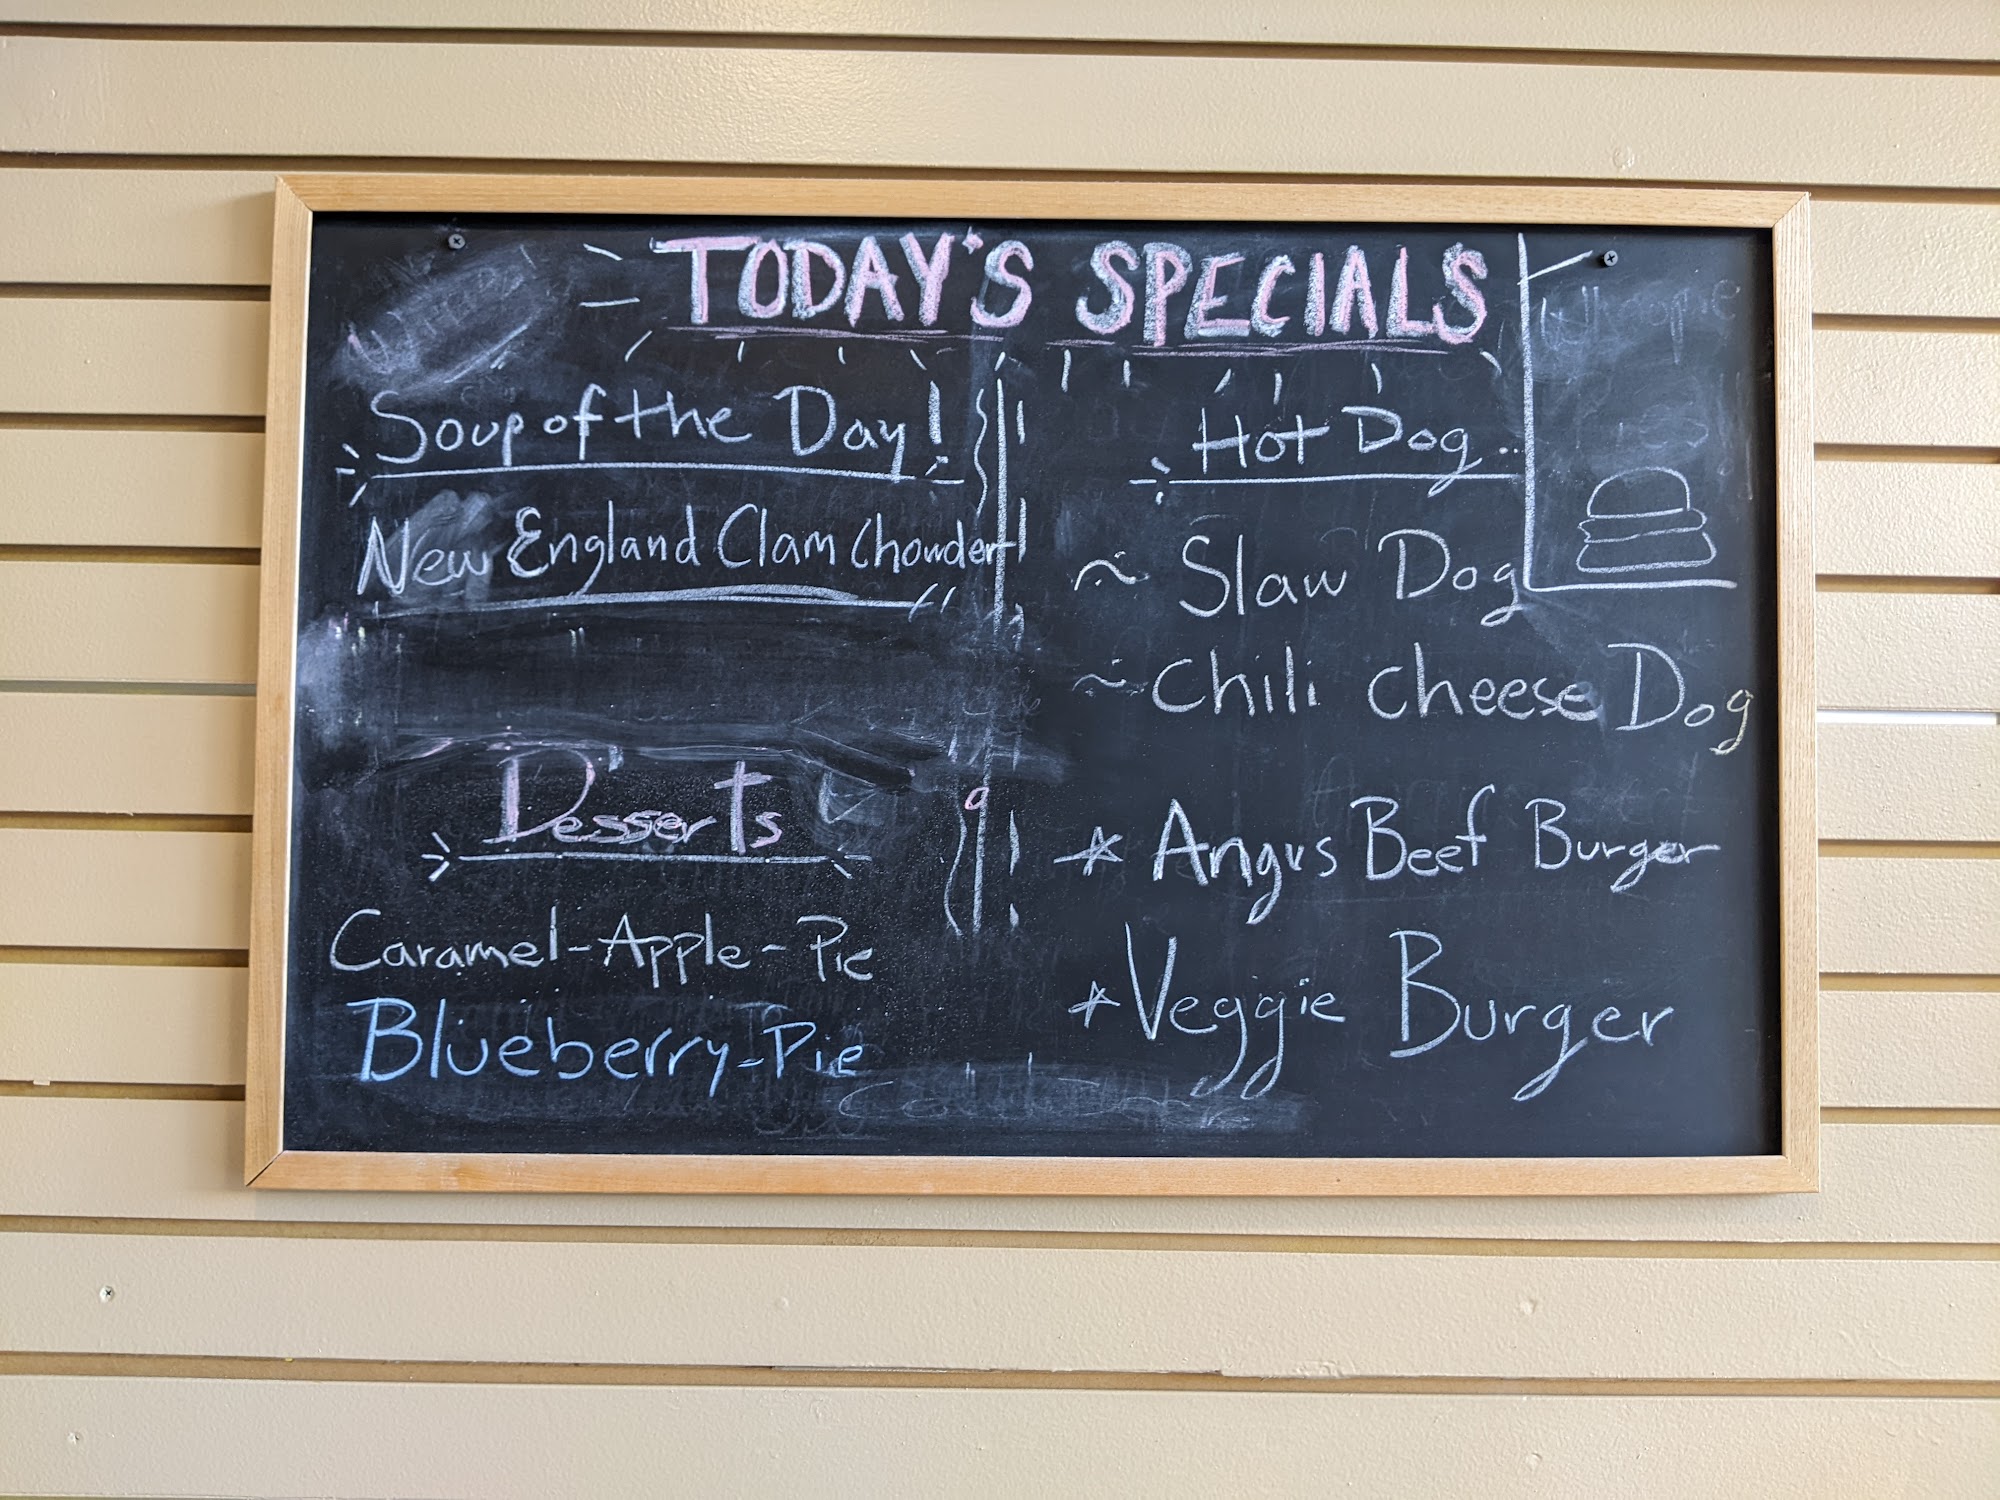 TODAY'S SPECIALS
Soup of the Day!
New England Clam Chowder
Desserts
Caramel-Apple-Pie
Blueberry-Pie
Hot Dog..
~ Slaw Dog
~ Chili Cheese Dog
☆ Angus Beef Burger
☆ Veggie Burger